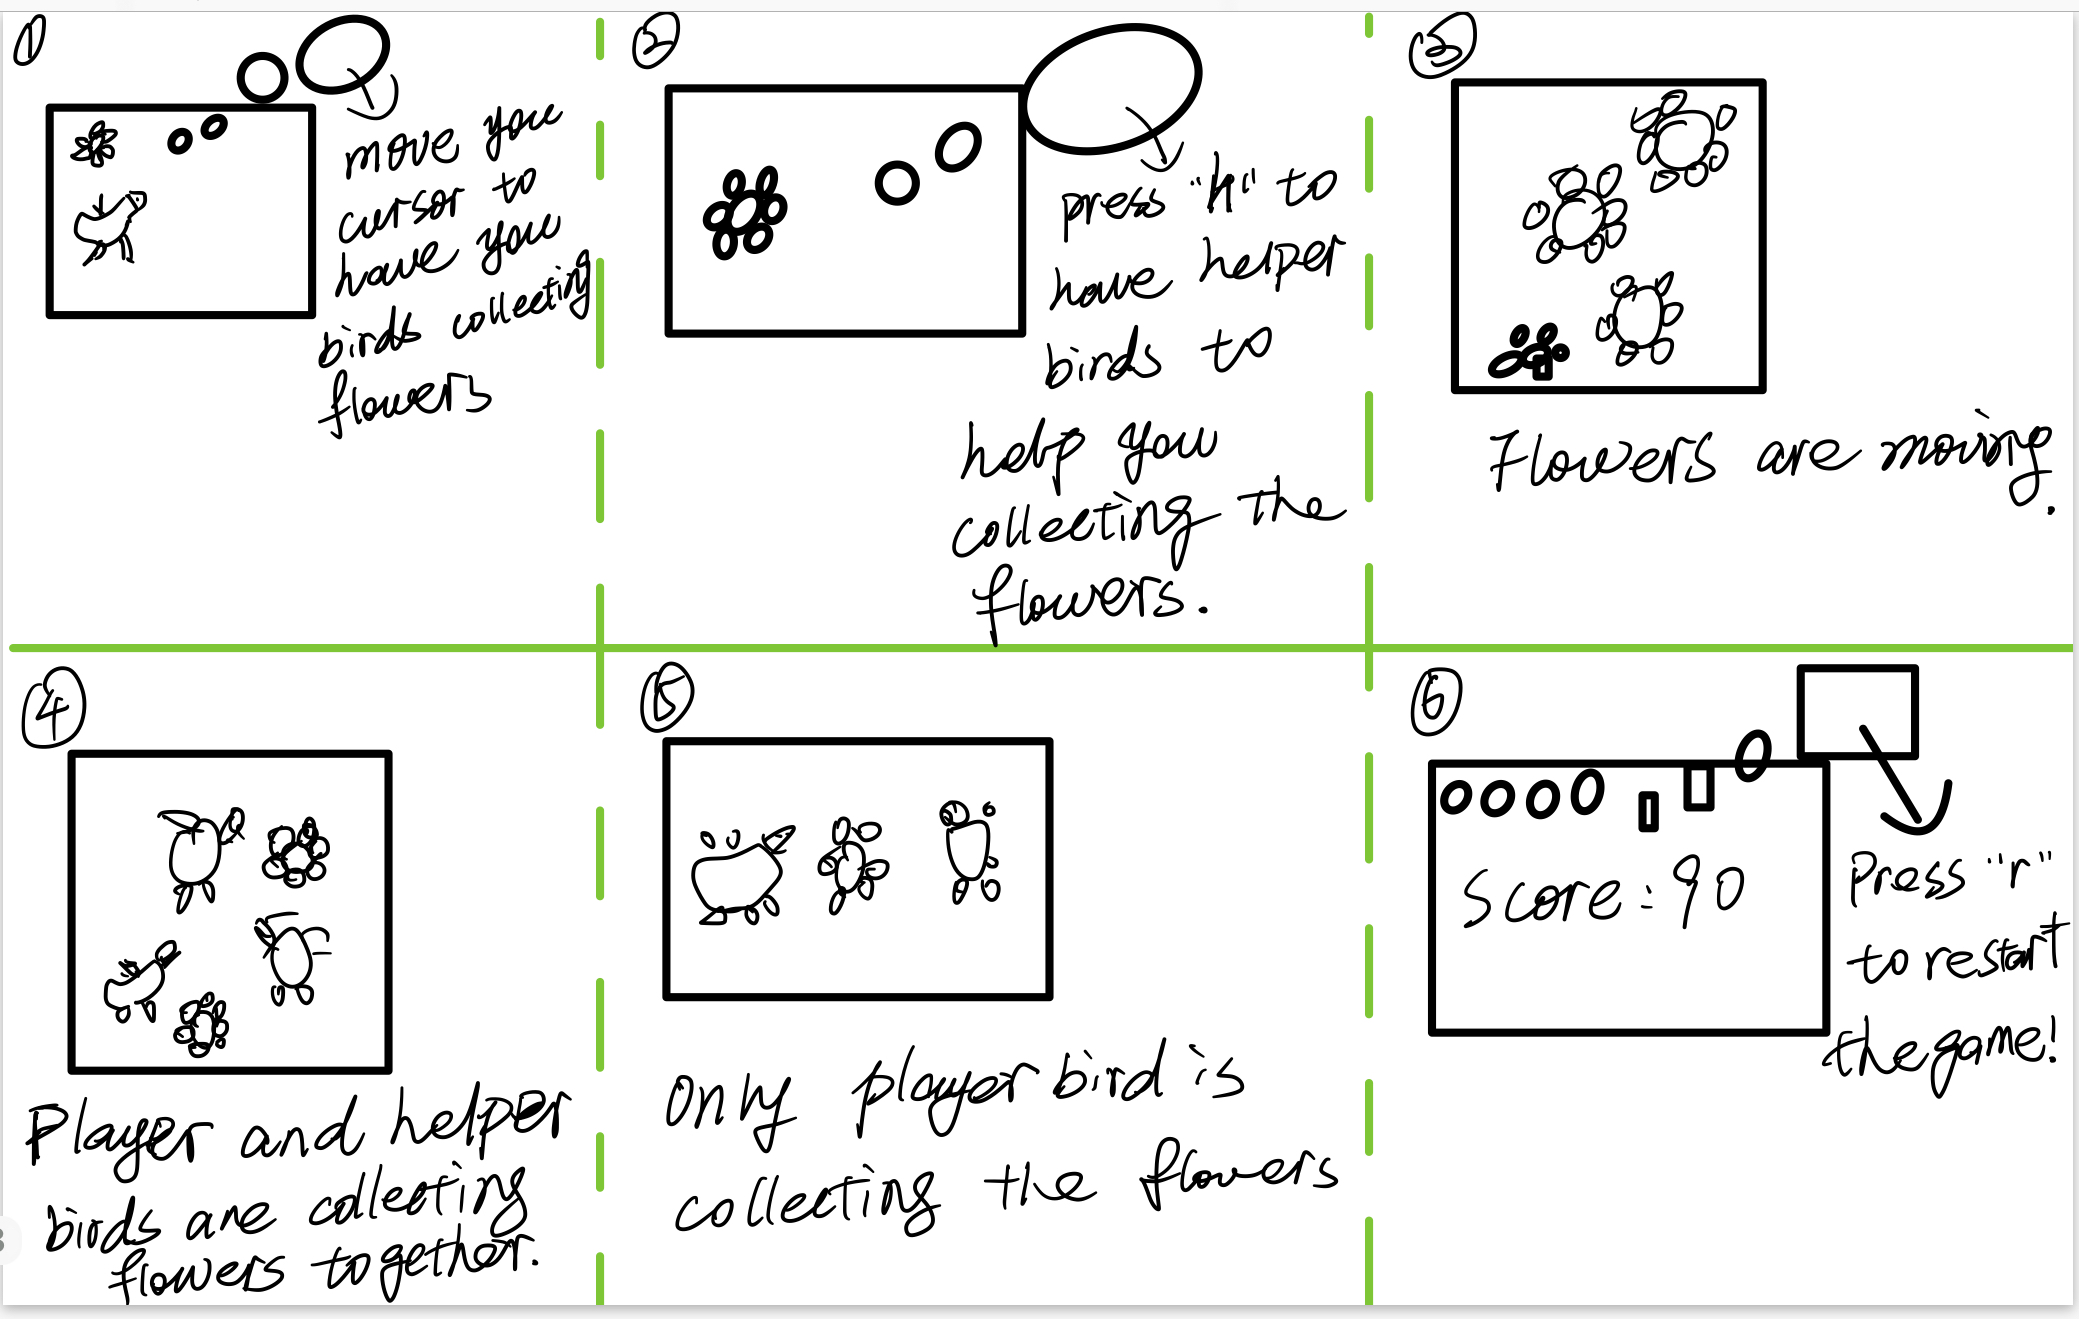 1
move you
cursor to
have you
birds collecting
flowers
2
press "h" to
have helper
birds to
help you
collecting the
flowers.
3
Flowers are moving.
4
Player and helper
birds are collecting
flowers together.
5
only player bird is
collecting the flowers
6
Score: 90
Press "r"
to restart
the game!